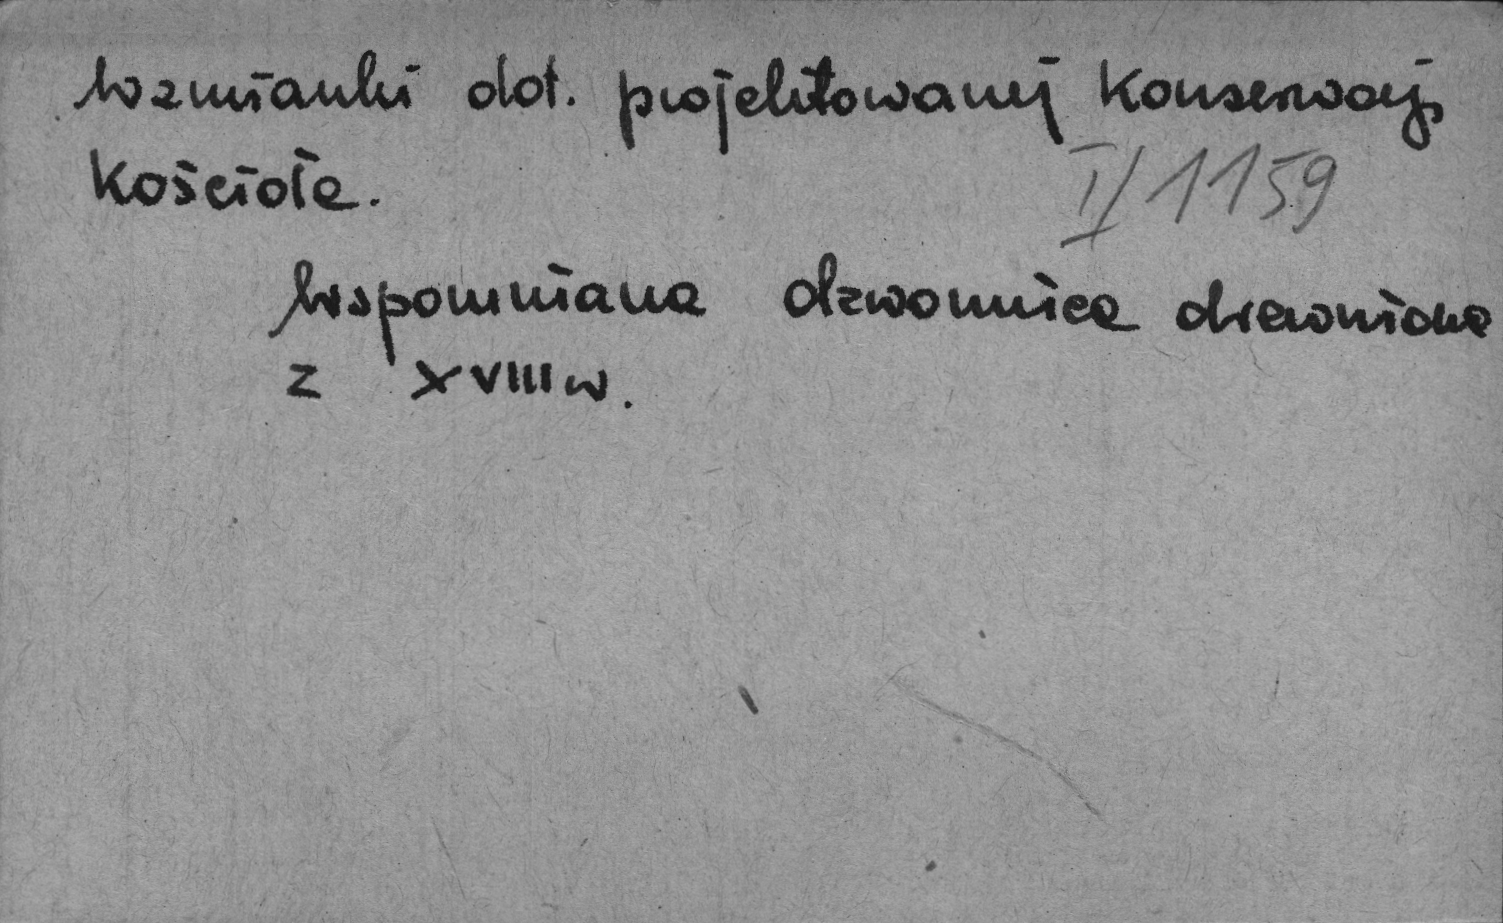 Wzmianki dot. projektowanej konserwacji
kościoła.
I/1159
Wspomniana dzwonnica drewniana
z XVIII w.